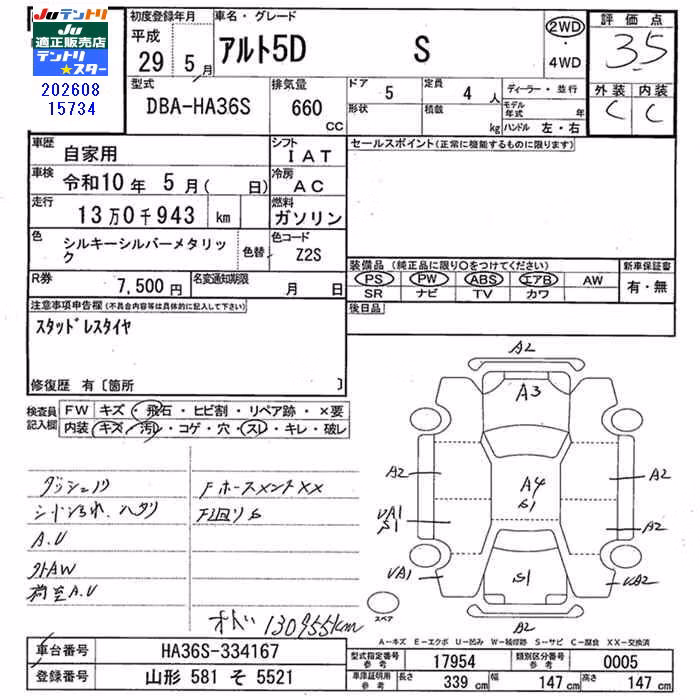 JUテントリ
JU
適正販売店
テントリ
★スター
202608
15734
初度登録年月
平成
29 5月
車名・グレード
アルト5D S
2WD
・
4WD
評価点
3.5
外装 内装
C C
型式
DBA-HA36S
排気量
660
cc
ドア
5
定員
4 人
形状
積載
kg
ディーラー・並行
モデル
年式 年
ハンドル 左・右
車歴
自家用
シフト
IAT
車検
令和10年 5月( 日)
冷房
AC
走行
13万0千943 km
燃料
ガソリン
色
シルキーシルバーメタリッ
ク
色替
色コード
Z2S
R券
7,500円
名変通知期限
月 日
セールスポイント(正常に機能するものに限ります)
装備品(純正品に限り○をつけてください)
新車保証書
PS PW ABS エアB AW
SR ナビ TV カワ
有・無
後日品
注意事項申告欄(不具合内容等は具体的に記入して下さい)
スタッドレスタイヤ
修復歴 有〔箇所 〕
検査員
記入欄
FW キズ・飛石・ヒビ割・リペア跡・×要
内装 キズ・汚レ・コゲ・穴・スレ・キレ・破レ
A.U
外AW
荷室A.U
130955km
A2
A3
A2
A2
A4
S1
UA1
S1
A2
UA1
S1
UA2
A2
スペア
A-キズ E-エクボ U-凹み W-補修跡 S-サビ C-腐食 XX-交換済
車台番号
HA36S-334167
登録番号
山形 581 そ 5521
型式指定番号
参考
17954
類別区分番号
参考
0005
車庫証明用
参考
長さ 339 cm
幅 147 cm
高さ 147 cm